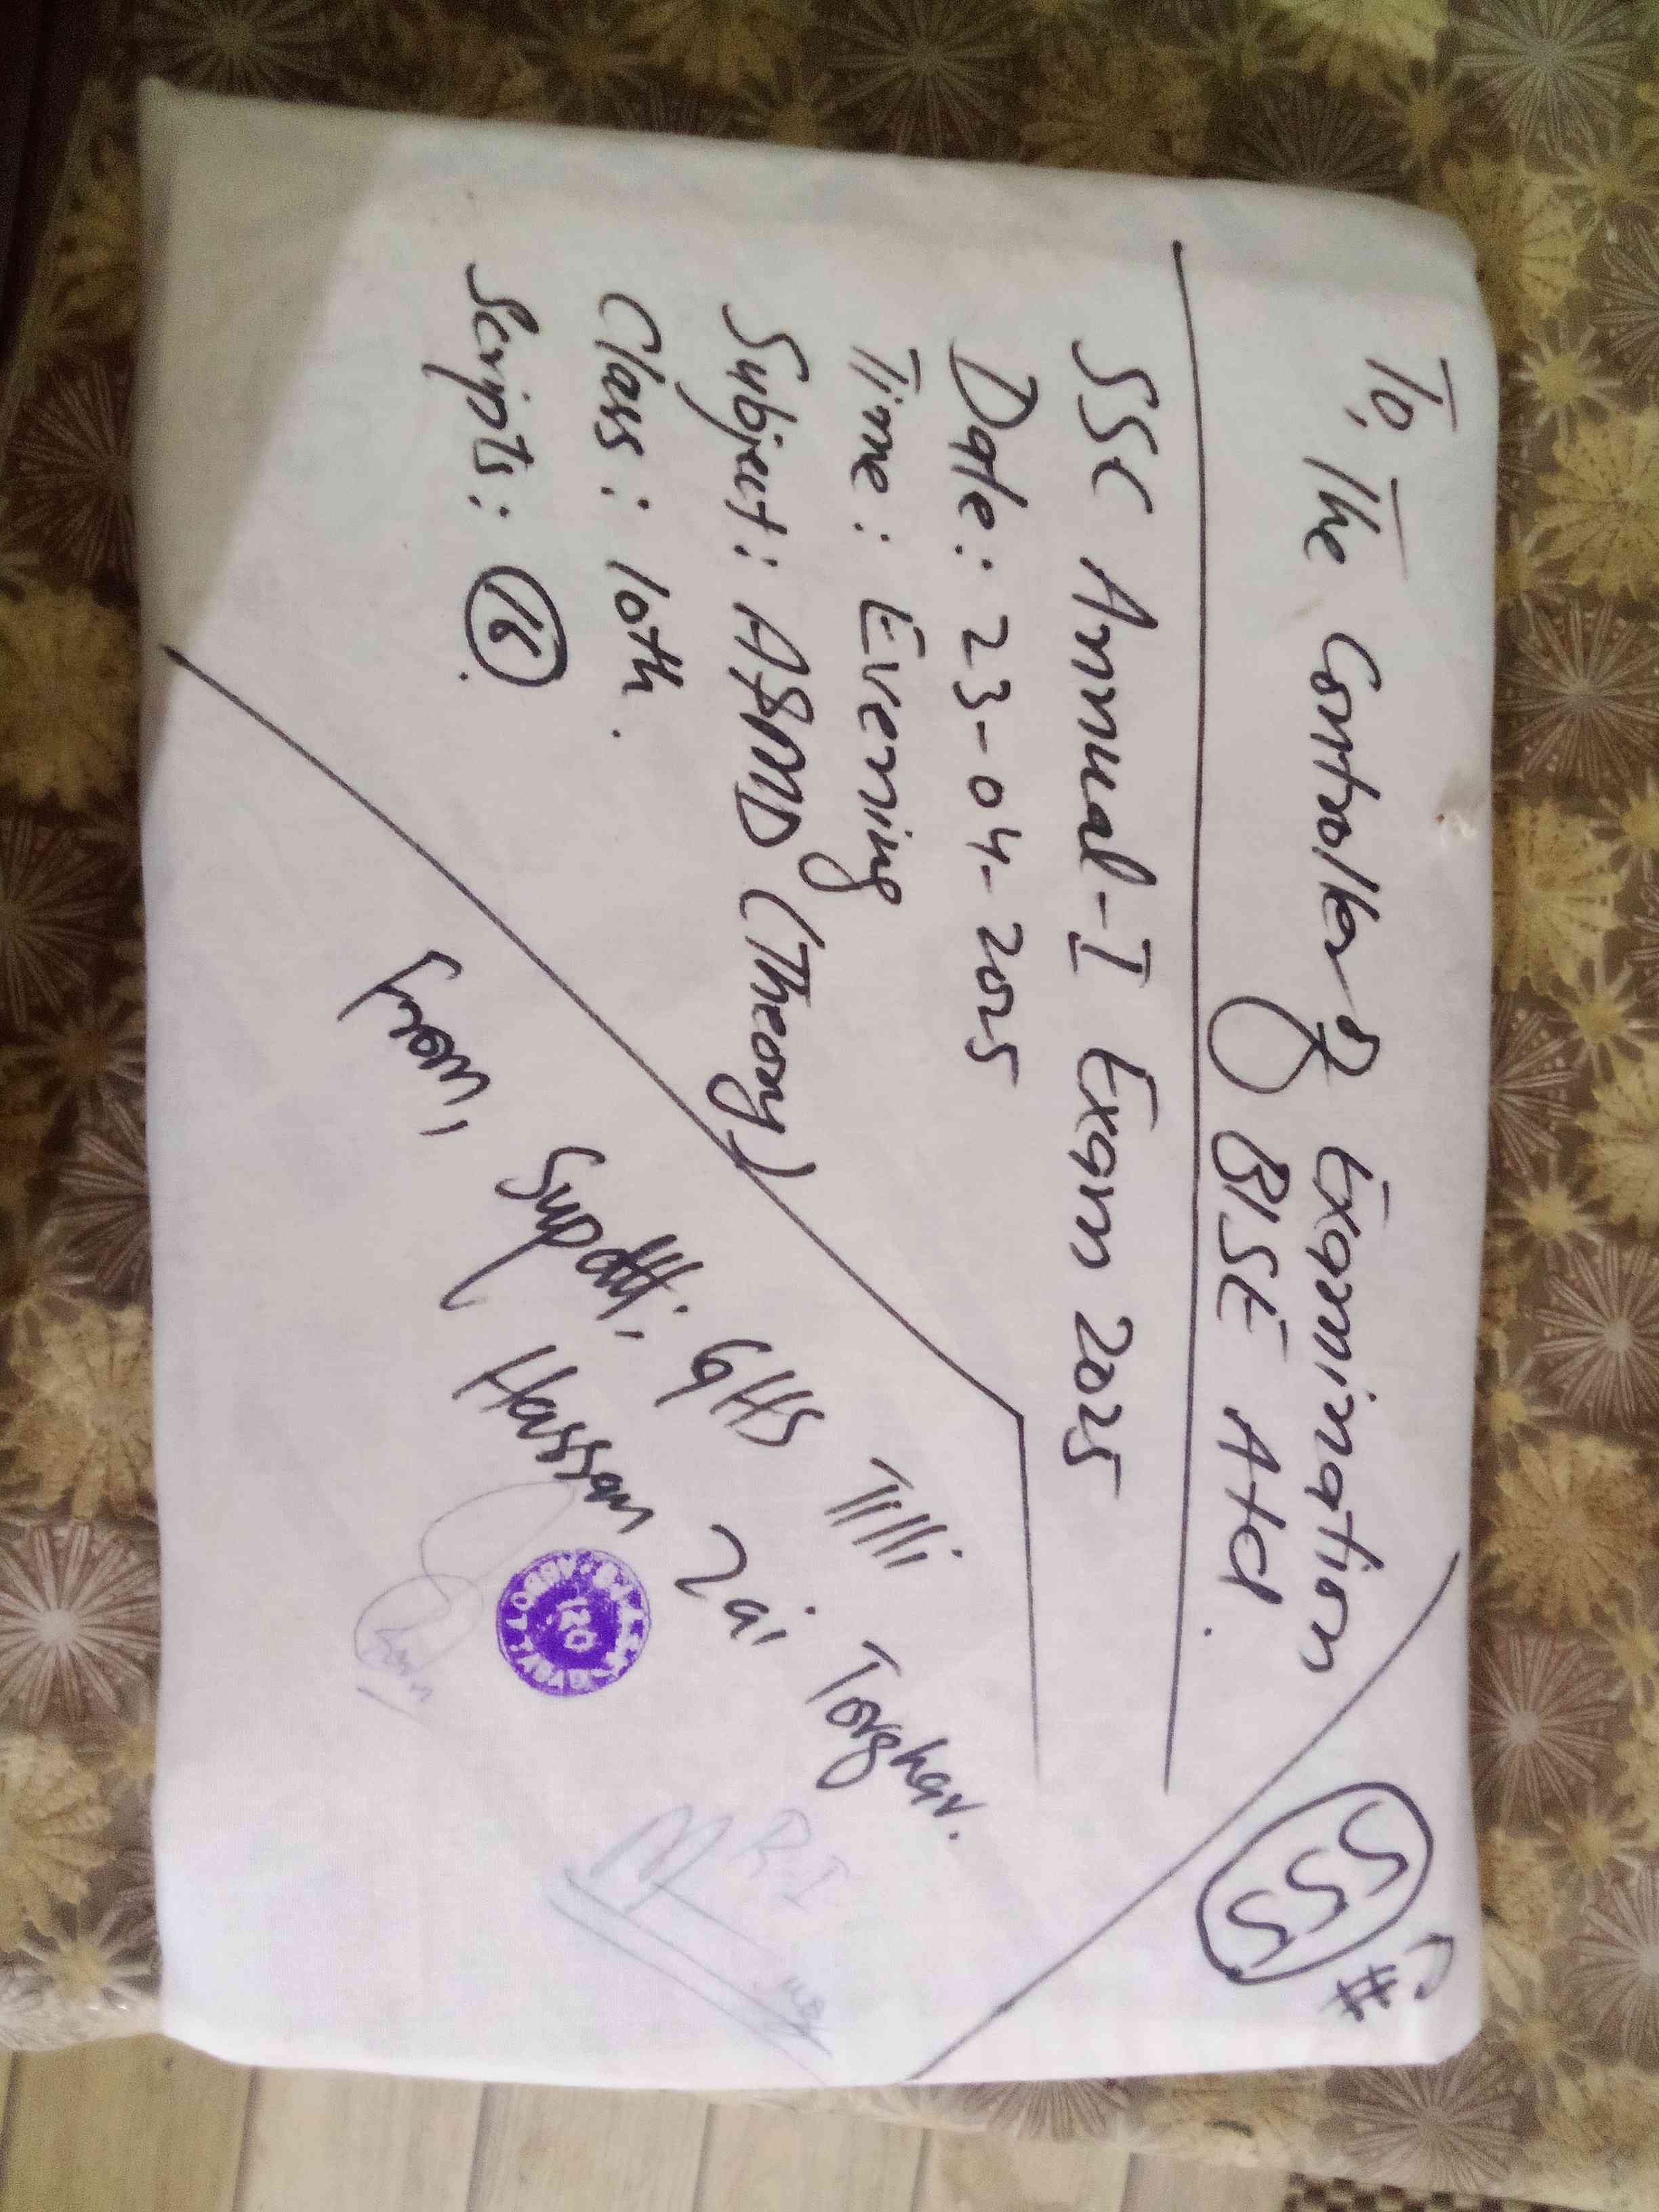 To, The Controller of Examination
BISE Atd.
C#
555
SSC Annual-I Exam 2025
Date: 23-04-2025
Time: Evening
Subject: AS&MD (Theory)
Class: 10th.
Scripts: 16
Supdtt; GHS Tilli
Hassan Zai Torghar.
R-I